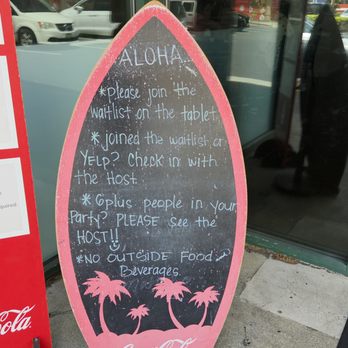 ALOHA...
*please join the
waitlist on the tablet.
*joined the waitlist on
YELP? Check in with
the Host.
* 6plus people in your
Party? PLEASE See the
HOST!!
*NO OUTSIDE Food
Beverages
Coca-Cola
Cola